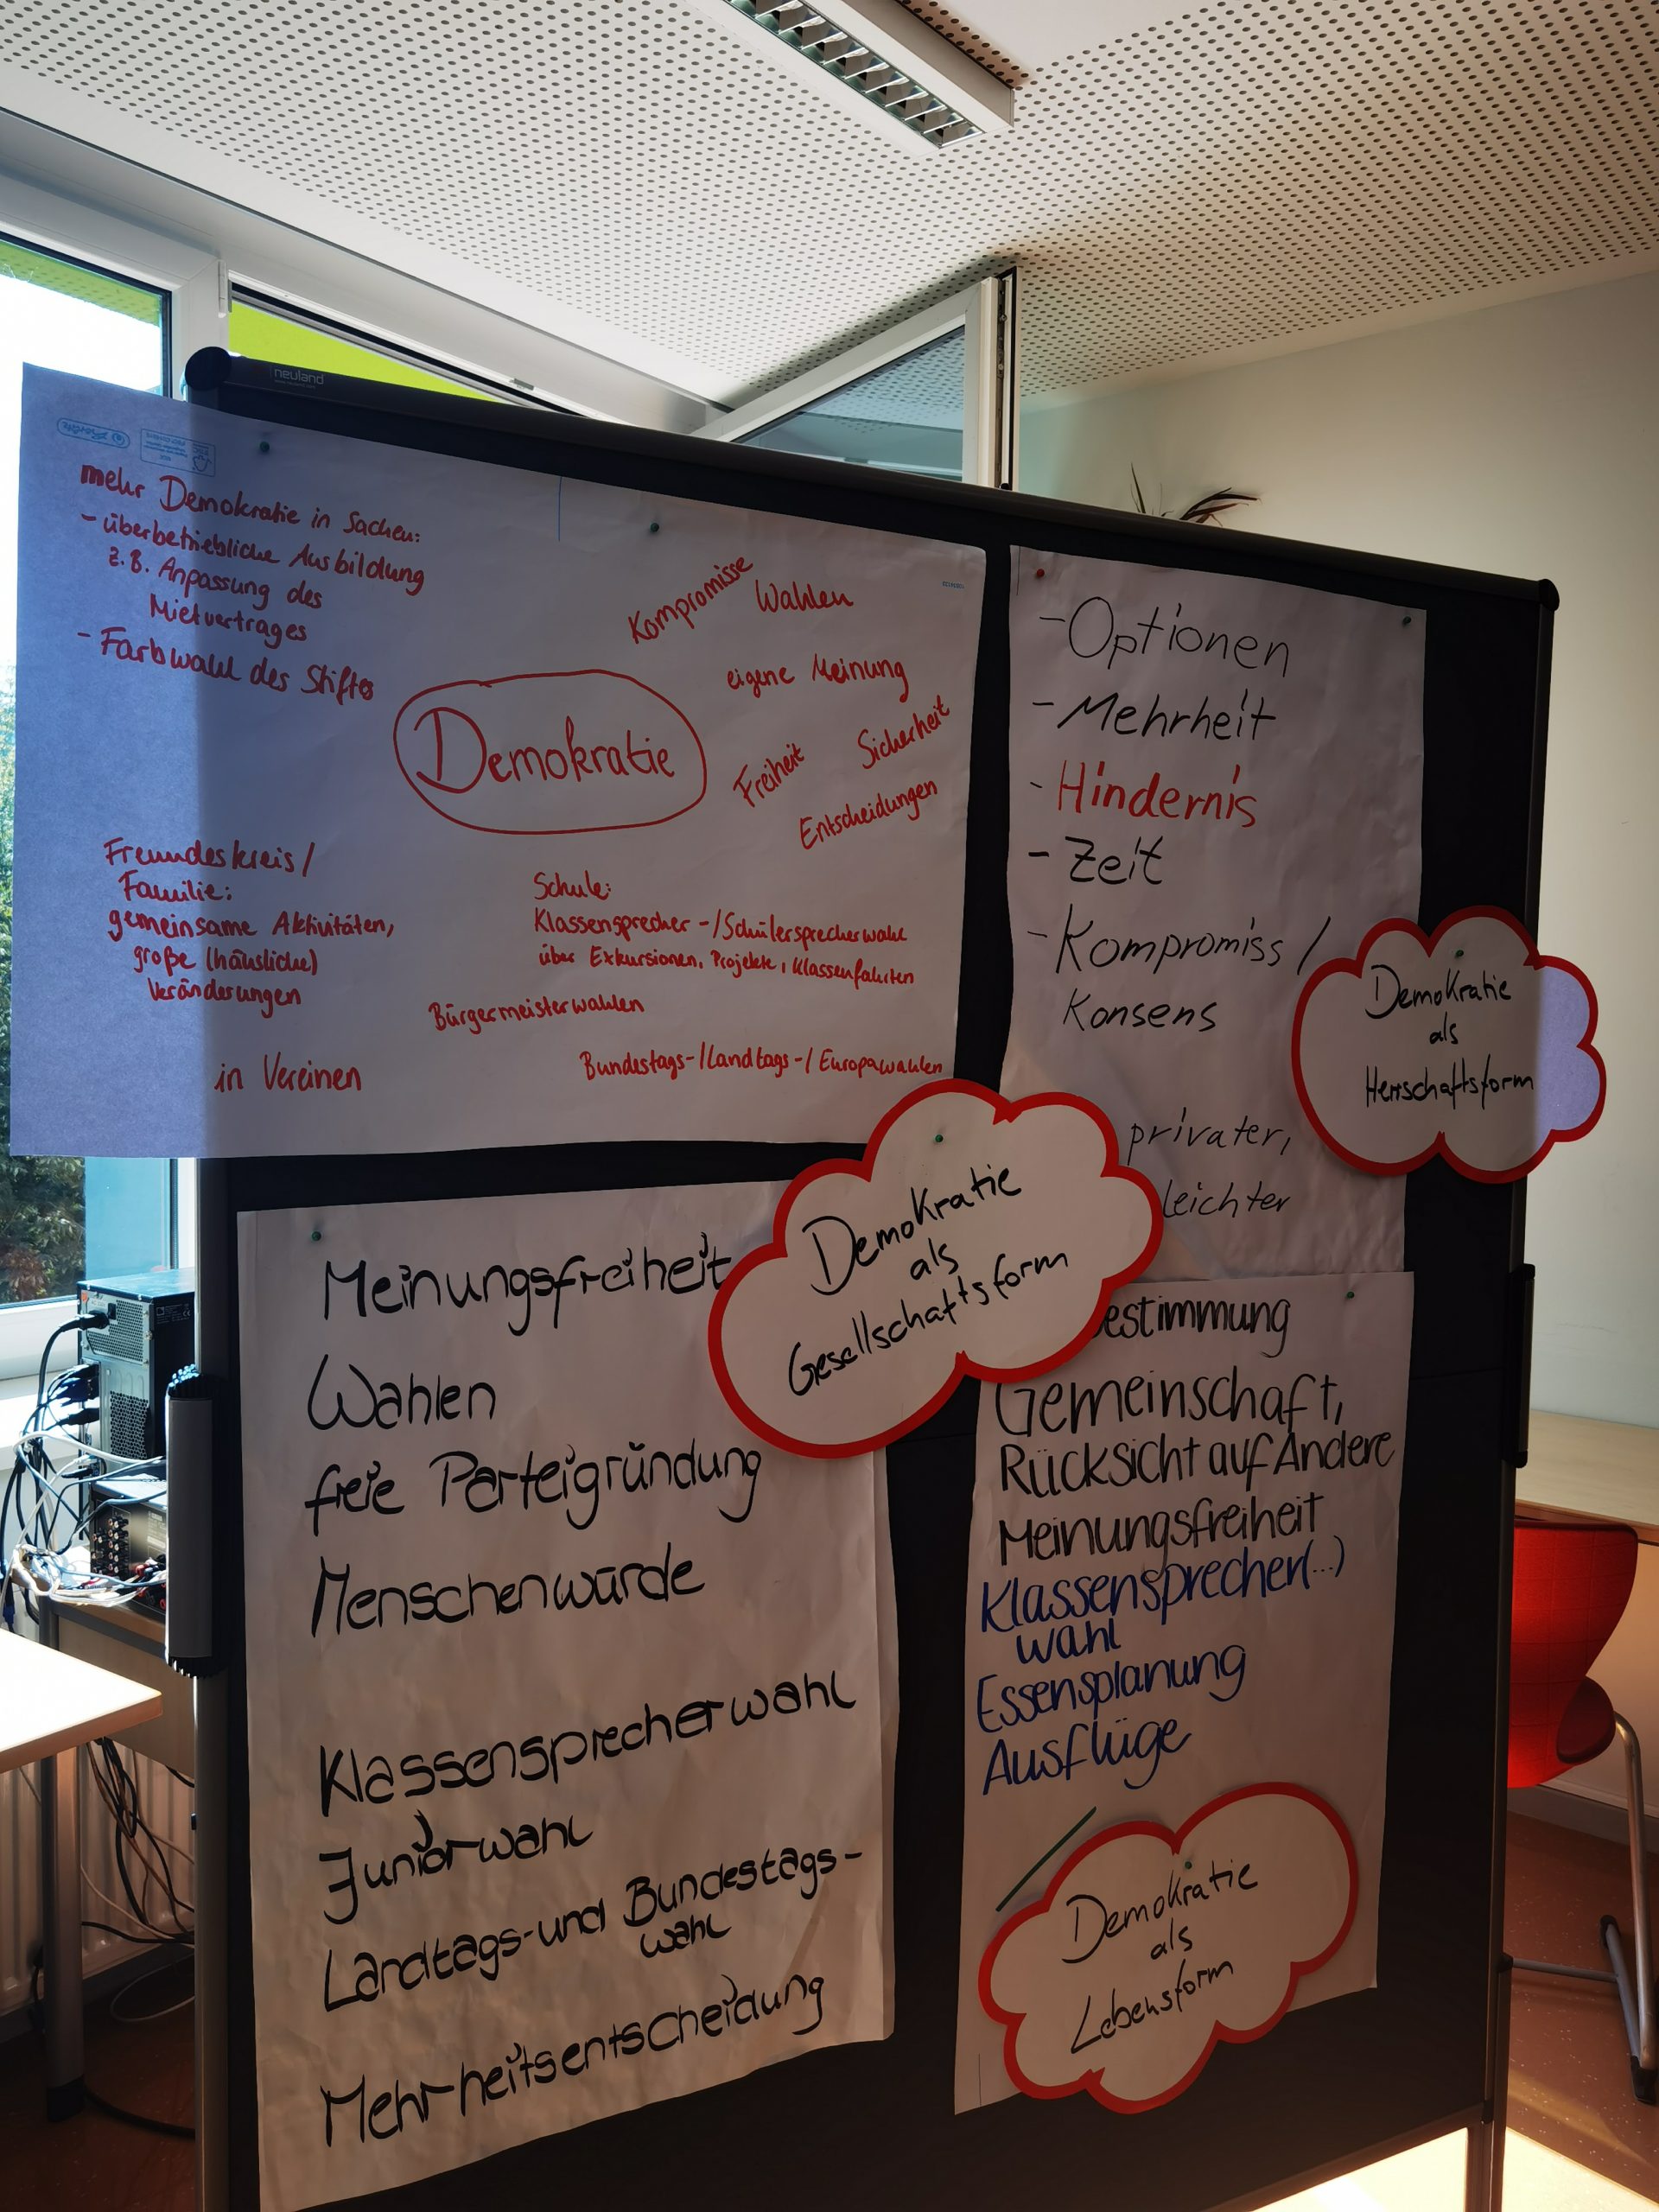 neuland
mehr Demokratie in Sachen:
- überbetriebliche Ausbildung
z.B. Anpassung des
Mietvertrages
- Farbwahl des Stiftes
Kompromisse
Wahlen
eigene Meinung
Freiheit
Sicherheit
Entscheidungen
Demokratie
Freundeskreis/
Familie:
gemeinsame Aktivitäten,
große (häusliche)
Veränderungen
Schule:
Klassensprecher-/Schülersprecherwahl
über Exkursionen, Projekte, Klassenfahrten
Bürgermeisterwahlen
in Vereinen
Bundestags-/Landtags-/Europawahlen
- Optionen
- Mehrheit
- Hindernis
- Zeit
- Kompromiss/
Konsens
privater,
leichter
Demokratie
als
Herrschaftsform
Demokratie
als
Gesellschaftsform
Meinungsfreiheit
Wahlen
freie Parteigründung
Menschenwürde
Klassensprecherwahl
Juniorwahl
Landtags- und Bundestags-
wahl
Mehrheitsentscheidung
estimmung
Gemeinschaft,
Rücksicht auf Andere
Meinungsfreiheit
Klassensprecher(...)
wahl
Essensplanung
Ausflüge
Demokratie
als
Lebensform